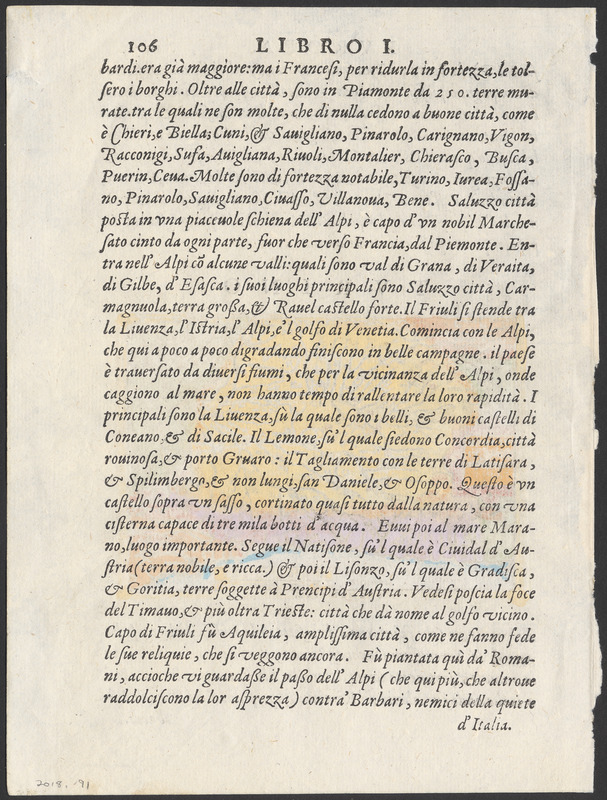 106 LIBRO I.
bardi.era già maggiore:ma i Francesi, per ridurla in fortezza,le tol-
sero i borghi. Oltre alle città, sono in Piamonte da 250. terre mu-
rate.tra le quali ne son molte, che di nulla cedono a buone città, come
è Chieri,e Biella; Cuni,& Sauigliano, Pinarolo, Carignano,Vigon,
Racconigi, Susa, Auigliana, Riuoli, Montalier, Chierasco, Busca,
Puerin, Ceua. Molte sono di fortezza notabile,Turino, Iurea, Fossa-
no, Pinarolo,Sauigliano, Ciuasso, Villanoua, Bene. Saluzzo città
posta in vna piaceuole schiena dell' Alpi, è capo d' vn nobil Marche-
sato cinto da ogni parte, fuor che verso Francia,dal Piemonte. En-
tra nell' Alpi cõ alcune valli:quali sono val di Grana, di Veraita,
di Gilbe, d' Esasca. i suoi luoghi principali sono Saluzzo città, Car-
magnuola,terra grossa,& Rauel castello forte.Il Friuli si stende tra
la Liuenza,l' Istria,l' Alpi,e'l golfo di Venetia. Comincia con le Alpi,
che qui a poco a poco digradando finiscono in belle campagne. il paese
è trauersato da diuersi fiumi, che per la vicinanza dell' Alpi, onde
caggiono al mare, non hanno tempo di rallentare la loro rapidità. I
principali sono la Liuenza,sù la quale sono i belli, & buoni castelli di
Coneano,& di Sacile. Il Lemone,su'l quale siedono Concordia,città
rouinosa,& porto Gruaro: il Tagliamento con le terre di Latisara,
& Spilimbergo,& non lungi,san Daniele,& Osoppo. Questo è vn
castello sopra vn sasso, cortinato quasi tutto dalla natura, con vna
cisterna capace di tre mila botti d' acqua. Euui poi al mare Mara-
no,luogo importante. Segue il Natisone, su'l quale è Ciuidal d' Au-
stria(terra nobile, e ricca.) & poi il Lisonzo, su'l quale è Gradisca,
& Goritia, terre soggette à Prencipi d' Austria. Vedesi poscia la foce
del Timauo,& più oltra Trieste: città che dà nome al golfo vicino.
Capo di Friuli fù Aquileia, amplissima città, come ne fanno fede
le sue reliquie, che si veggono ancora. Fù piantata quì da' Roma-
ni, accioche vi guardasse il passo dell' Alpi (che qui più, che altroue
raddolciscono la lor asprezza) contra' Barbari, nemici della quiete
d' Italia.
2018. 91